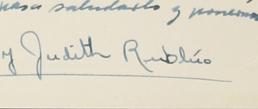 para saludarlo y ponernos
y Judith Rublúo